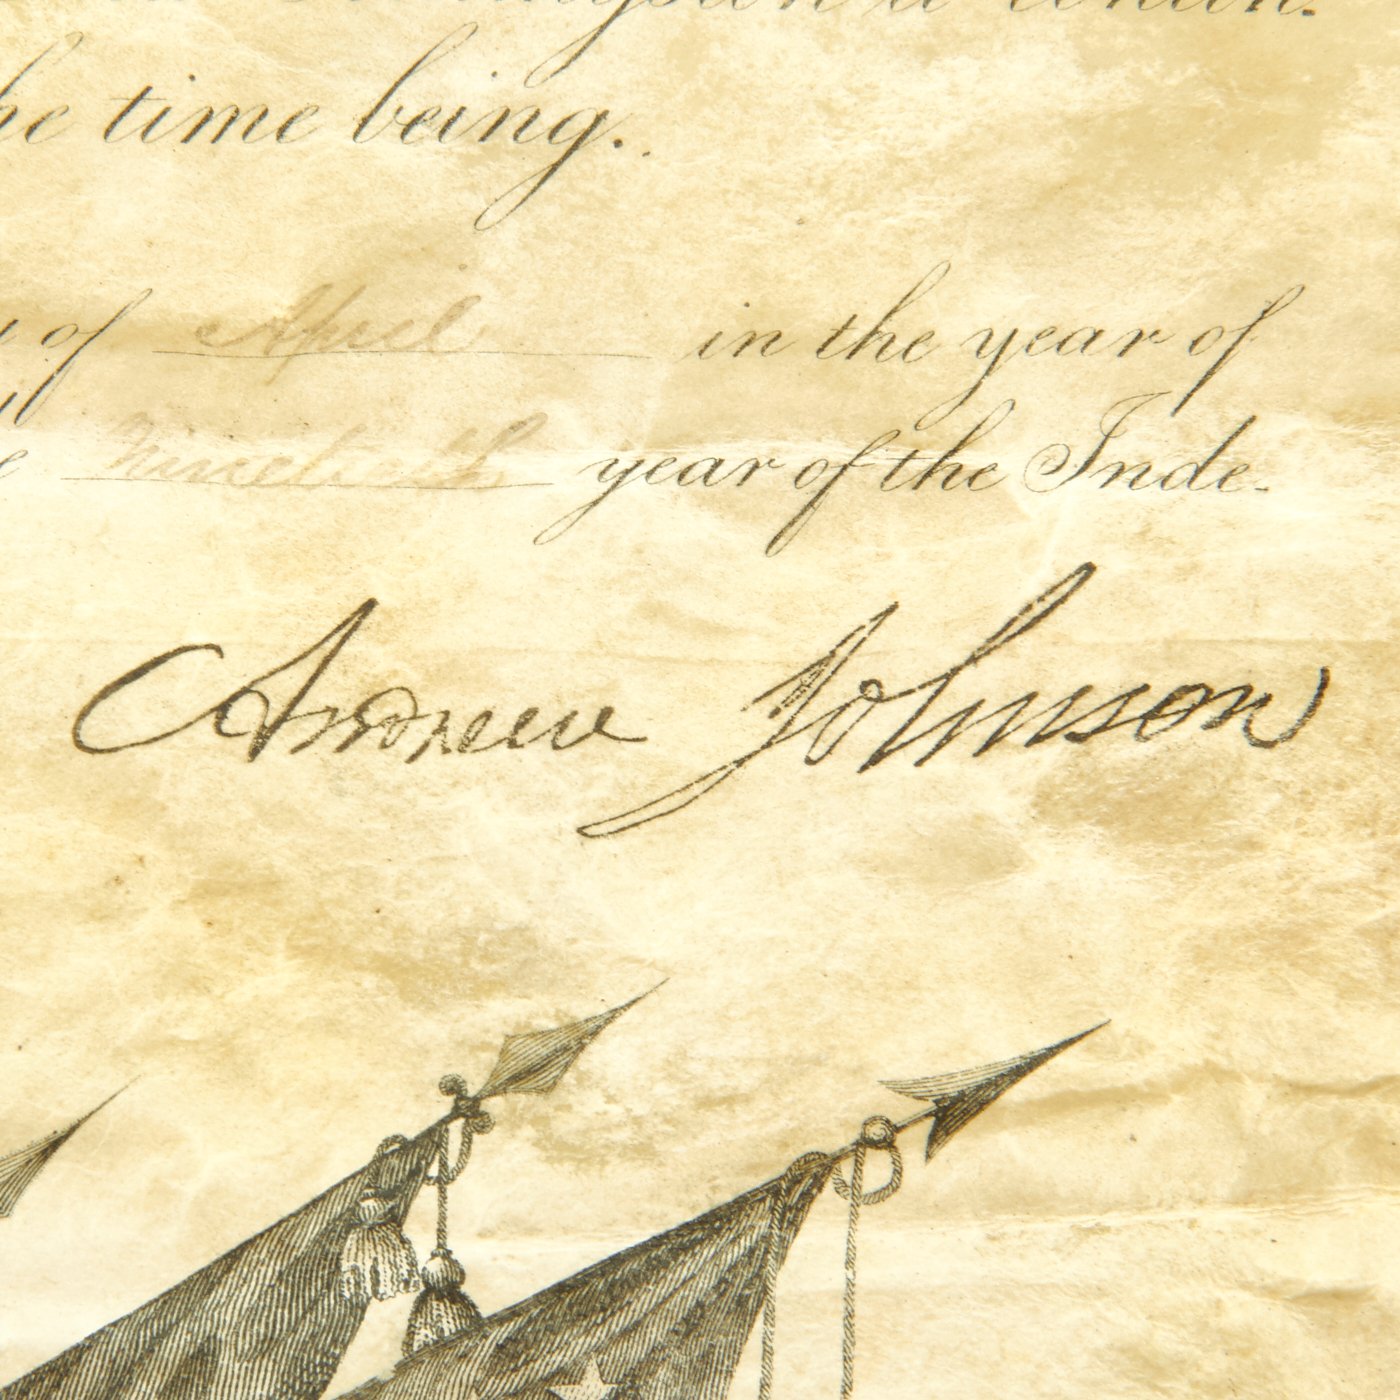 he time being.
of April in the year of
Ninetieth year of the Inde-
Andrew Johnson